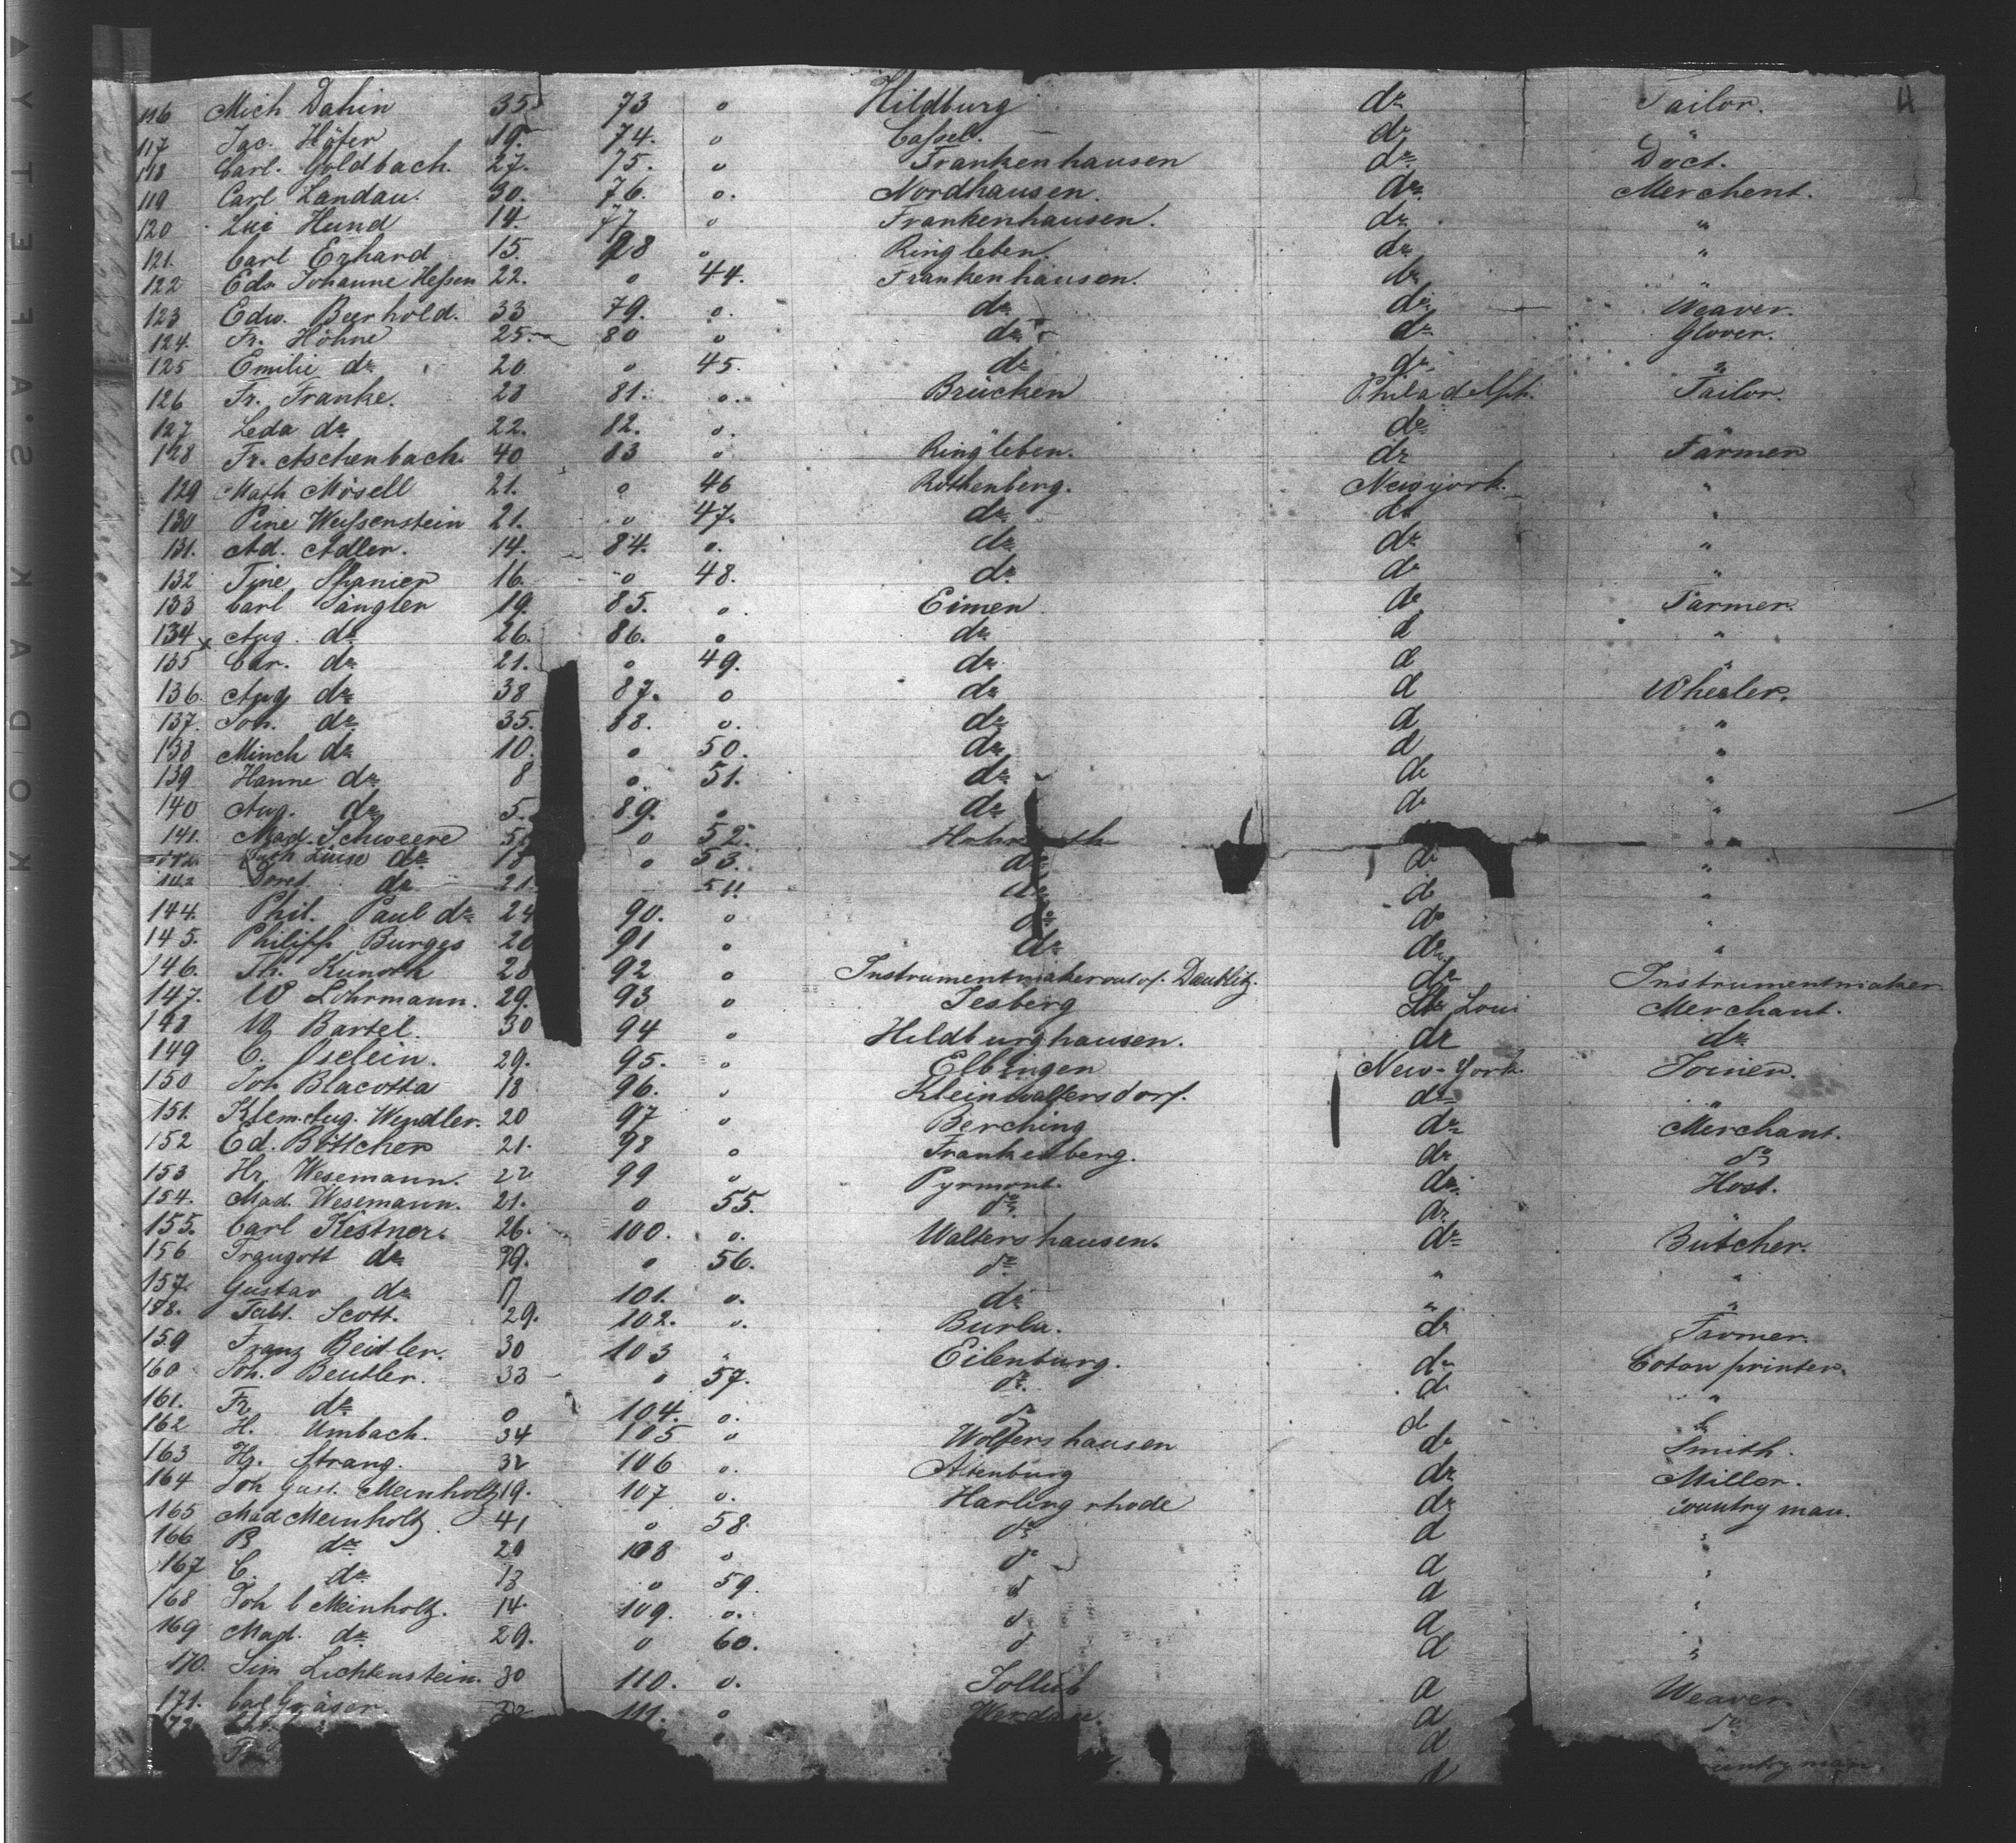 4
116 Mich Dahin 35. 73 o Hildburg do Tailor.
117 Jac. Höfer 19. 74. o Cassel. do "
118 Carl. Goldbach. 27. 75. o Frankenhausen do Doct.
119 Carl Landau. 30. 76. o. Nordhausen. do Merchent.
120 Lui Hund 14. 77 o Frankenhausen. do "
121. Carl Erhard 15. 78 o Ringleben. do "
122 Edr Johanne Hessen 22. o 44. Frankenhausen. do "
123 Edw. Beerhold. 33 79. o. do do Weaver.
124. Fr. Höhne 25. 80 o do do Glover.
125 Emilie do 20 o 45. do do "
126 Fr. Franke. 28 81. o. Brücken Philadelph. Tailor.
127 Leda do 22. 82. o. " do "
128 Fr. Aschenbach. 40 83 o Ringleben. do Farmer
129 Math Mösell 21. o 46 Rothenberg. Newyork. "
130 Pine Weissenstein 21. o 47. do do "
131. Ad. Adler. 14. 84. o. do do "
132 Tine Spanier 16. o 48. do do "
133 Carl Sängler 19. 85. o. Eimen do Farmer.
134 x Aug. do 26. 86. o do d "
135 Car. do 21. o 49. do d "
136. Aug do 38 87. o do d Wheeler.
137. Joh. do 35. 88. o. do d "
138 Minch do 10. o 50. do d "
139 Hanne do 8 o. 51. do do "
140 Aug. do 5. 89. o do do "
141. Mad. Schweere 5 o 52. "
Louise do 18 o 53. do do "
do 21. 54. do do "
144. Phil. Paul do 24 90. o do do "
145. Philipp Burges 20 91 o do do "
146. Th. Kunoth 28 92 o Instrumentmaker out of. Daublitz. do Instrumentmaker
147. W Lohrmann. 29. 93 o Jesberg St. Loui Merchant.
148 W Bartel. 30 94 o Hildburghausen. do do
149 C. Oselein. 29. 95. o Elbingen New-York. Joiner.
150 Joh Blacotta 18 96. o Kleinwaltersdorf. do "
151. Klem. Aug. Wendler. 20 97 o Berching do Merchant.
152 Ed. Böttcher 21. 98 o Frankenberg. do do
153 Hr. Wesemann. 22 99 o Pyrmont. do Host.
154. Mad. Wesemann. 21. o 55. do do
155. Carl Kestner. 26. 100. o. Waltershausen. do Butcher.
156 Traugott do 29. o 56. do " "
157. Gustav do 17 101. o. do " "
158. Scott. 29. 102. o. Burla. do Farmer.
159 Franz Beitler. 30 103 " Eilenburg. do Coton printer.
160 Joh. Beutler. 33 o 57. do d "
161. Fr. do o 104. o. do d
162 H. Umbach. 34 105 o Wolfershausen do Smith.
163 Hr. Strang. 32 106 o. Altenburg do Miller.
164 Joh Gust. Meinholz 19. 107 o. Harlingrhode do Country man.
165 Mad Meinholz. 41 o 58. do d "
166 B do 20 108 o do d "
167 C. do 13 o 59. d d
168 Joh C Meinholz. 14. 109. o. d d "
169 Mad. do 29. o 60. d d "
170. Sim Lichtenstein. 30 110. o. Jollub d Weaver.
171. Carl Gräser 32 111. o Werdau. d do
172. o d
d untry man